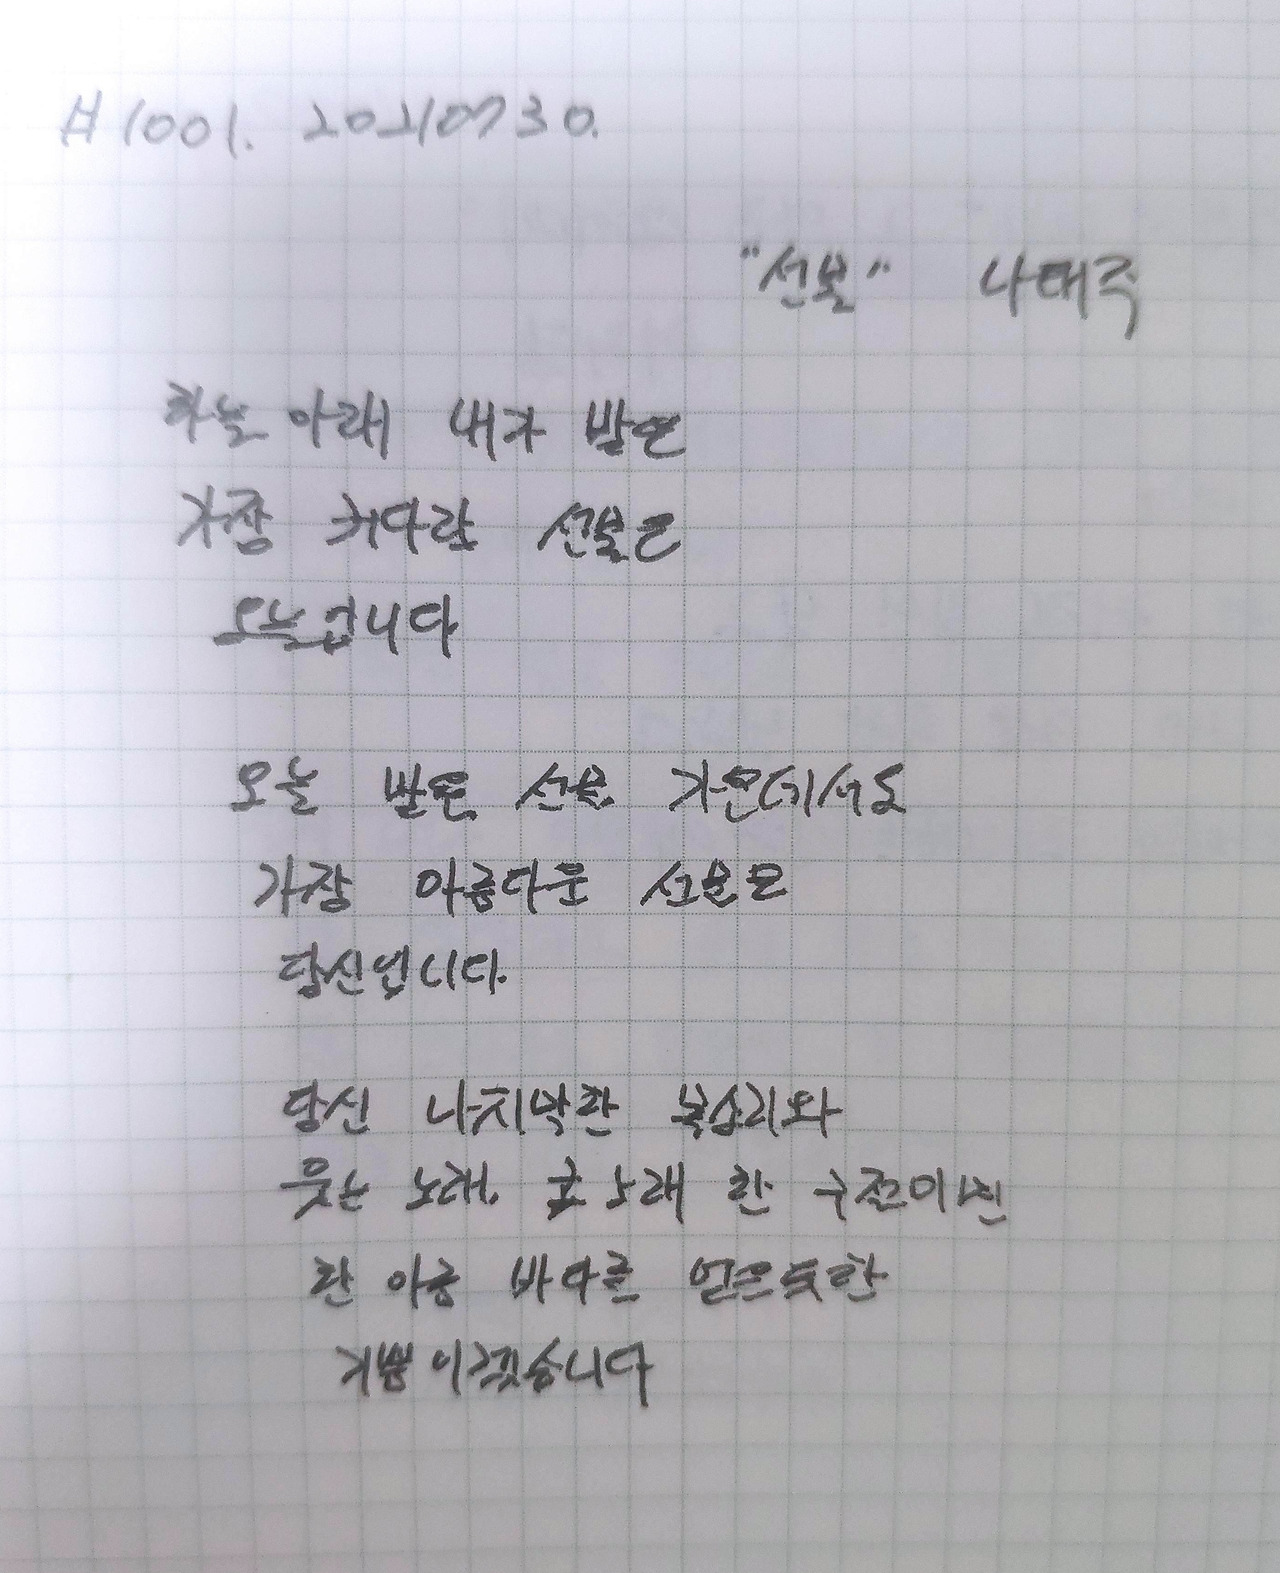 #1001. 20210730.
"선물" 나태주
하늘 아래 내가 받은
가장 커다란 선물은
오늘입니다
오늘 받은 선물 가운데서도
가장 아름다운 선물은
당신입니다.
당신 나지막한 목소리와
웃는 노래, 콧노래 한 구절이면
한 아름 바다를 안은듯한
기쁨이겠습니다